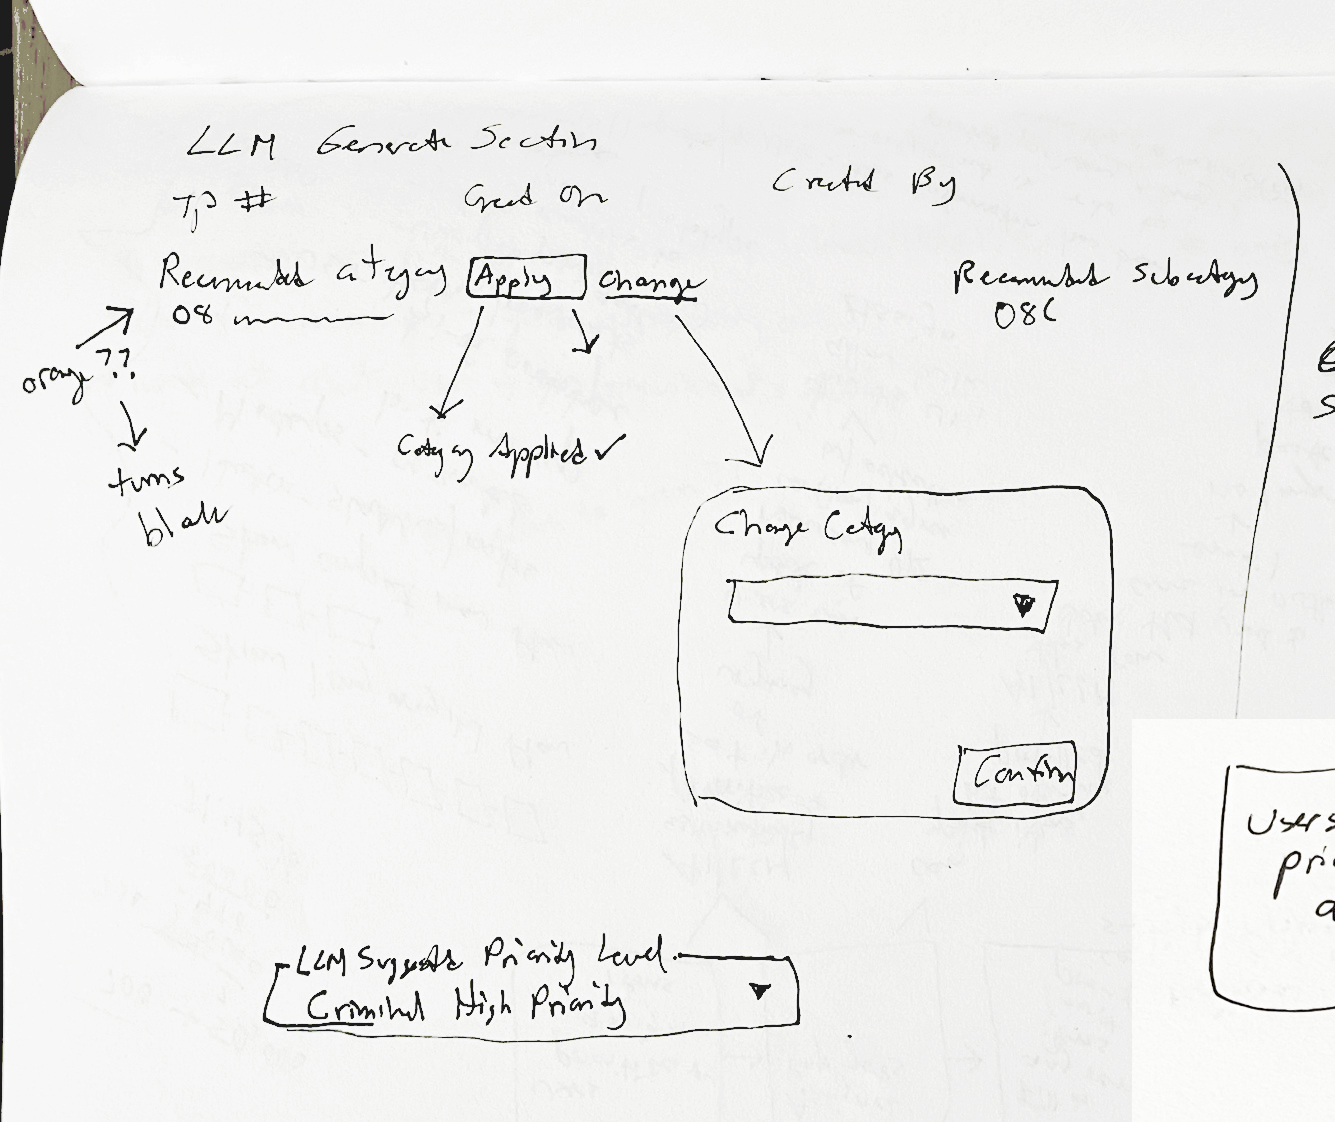 LLM Generate Section
Tip #
Created On
Created By
Recommended category
Apply
Change
Recommended Subcategory
08
08C
orange ??
turns
black
Category Applied ✓
Change Category
Confirm
LLM Suggested Priority Level
Criminal High Priority
Users
pri
a
S